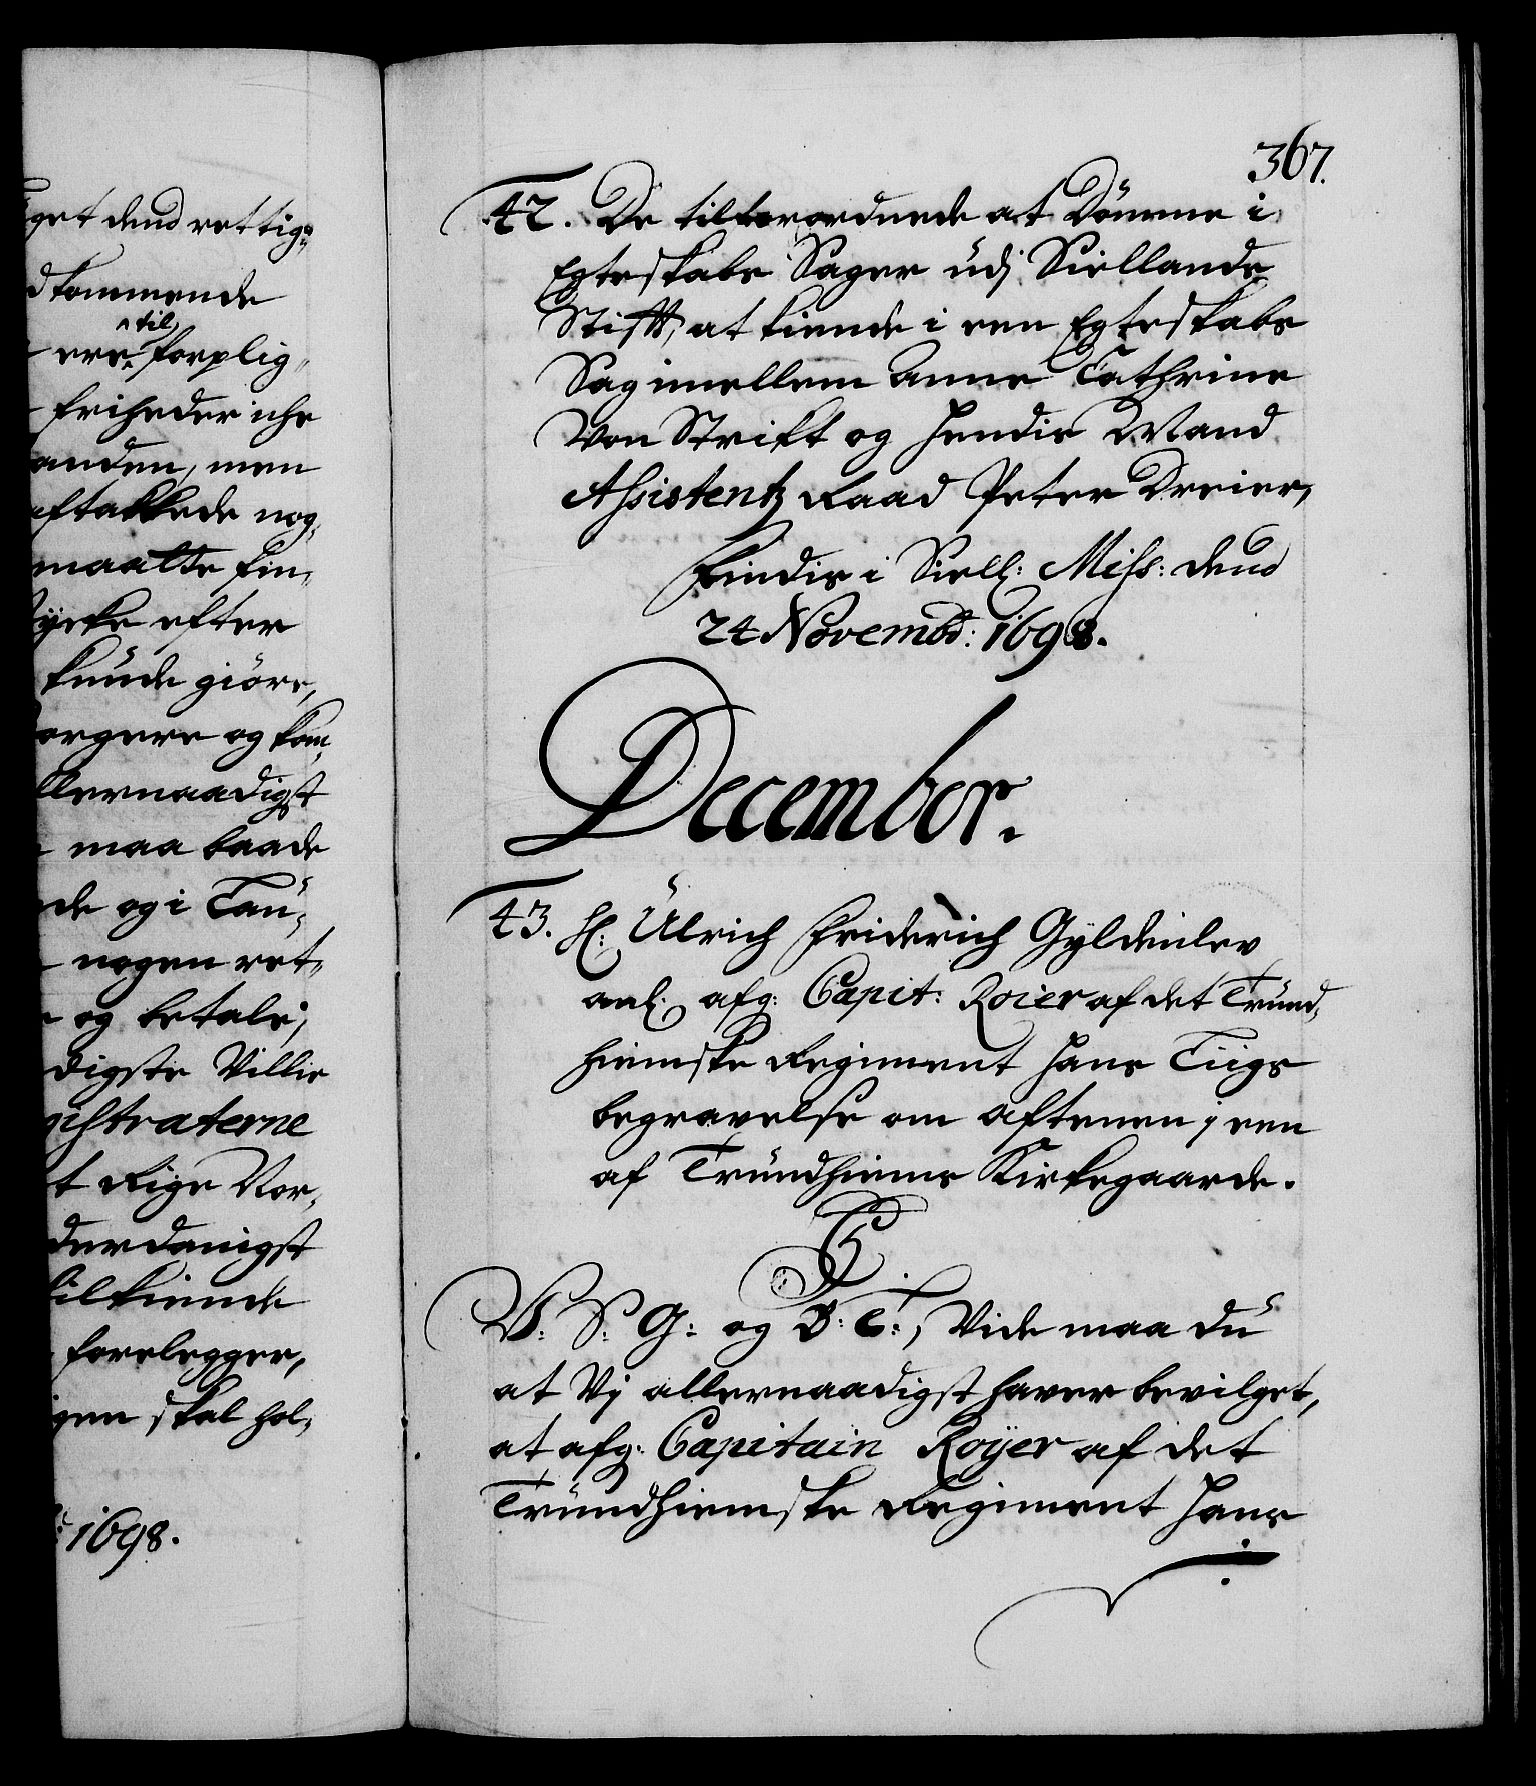 get dend rettig=
dkommende
^til
ere forplig,
friheder iche
anden, men
aftakkede nog,
maatte fin,
tycke efter
kunde giöre,
orgere og kom,
llernaadigst
maa baade
de og i Tau,
nogen ret,
og betale,
digste Villie
gistraterne
t Rige Nor,
derdanigst
tilkiende
forelegger,
igen skal hol,
1698.
367.
42. De tilforordnede at Dömme i
Egteskabs Sager udj Siellands
Stift, at kiende i een Egteskabs
Sag imellem Anne Cathrine
Von Strikt og hendis Mand
Assistentz Raad Peter Dreier,
Findis i Siell: Miss: dend
24 Novembr: 1698.
December.
43. H: Ulrich Friderich Gyldenlev
anl: afg: Capit: Roier af det Trund,
hiemske Regiment hans Liigs
begravelse om aftenen j een
af Trundhiems Kirkegaarde.
C5
V: S: G: og B: T:, Vide maa du
at Vj allernaadigst haver bevilget,
at afg: Capitain Royer af det
Trundhiemske Regiment hans